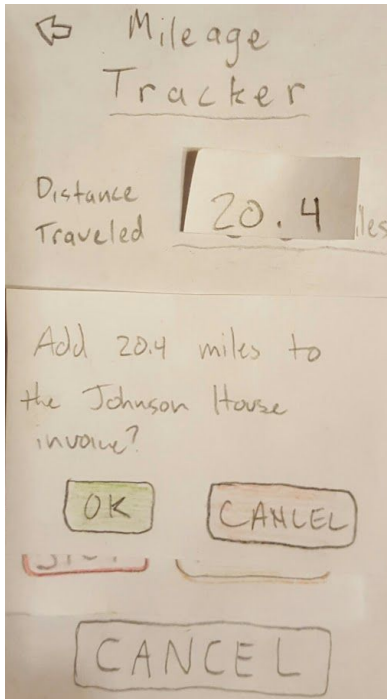 Mileage
Tracker
Distance
Traveled
20.4
iles
Add 20.4 miles to
the Johnson House
invoice?
OK
CANCEL
CANCEL